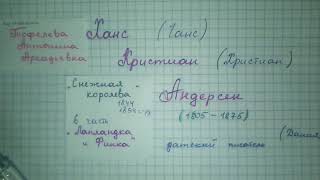 Трофелева
Антонина
Аркадьевна
Ханс (Ганс)
Кристиан (Христиан)
Андерсен
(1805 - 1875)
датский писатель (Дания
"Снежная
королева
1844
6 часть
"Лапландка
и Финка"